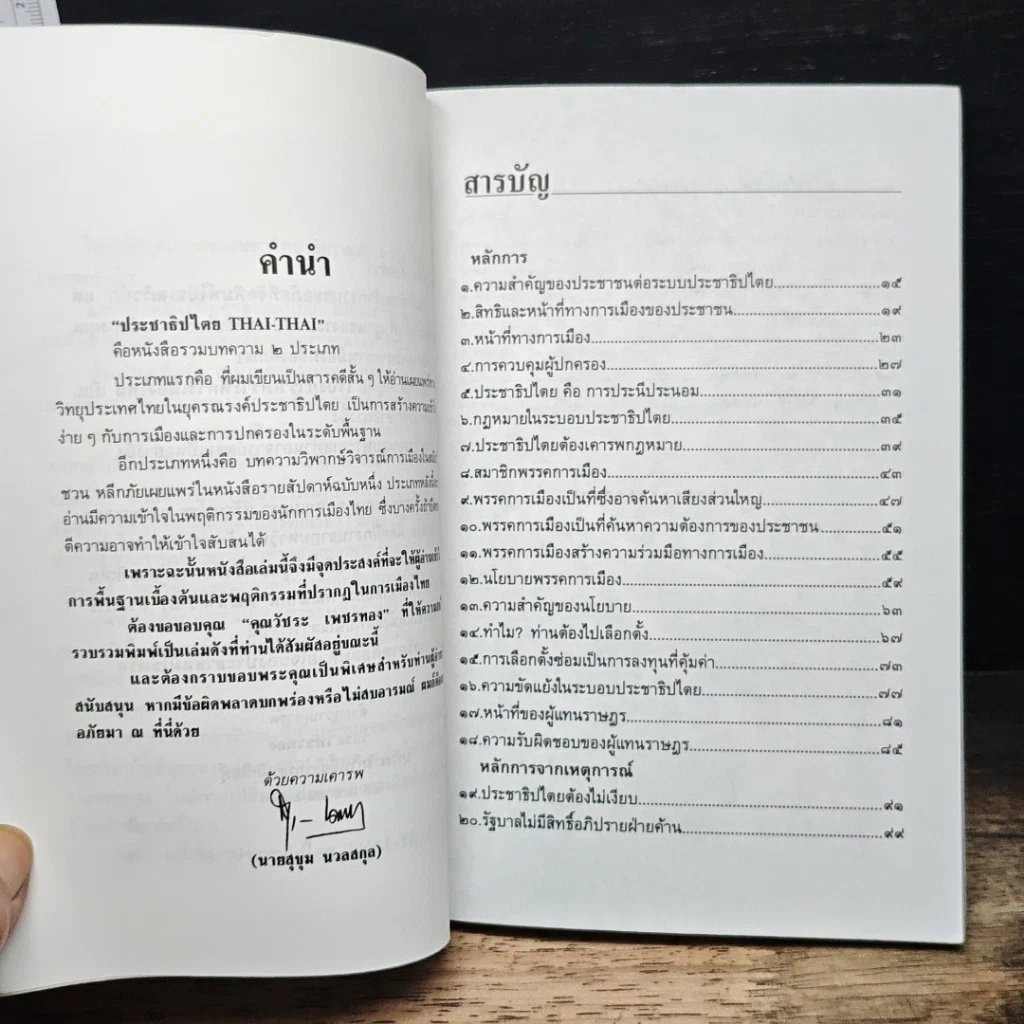 คำนำ
"ประชาธิปไตย THAI-THAI"
คือหนังสือรวมบทความ ๒ ประเภท
ประเภทแรกคือ ที่ผมเขียนเป็นสารคดีสั้น ๆ ให้อ่านเผยแพร่
วิทยุประเทศไทยในยุครณรงค์ประชาธิปไตย เป็นการสร้าง
ง่าย ๆ กับการเมืองและการปกครองในระดับพื้นฐาน
อีกประเภทหนึ่งคือ บทความวิพากษ์วิจารณ์การเมือง
ชวน หลีกภัยเผยแพร่ในหนังสือรายสัปดาห์ฉบับหนึ่ง
อ่านมีความเข้าใจในพฤติกรรมของนักการเมืองไทย ซึ่งบางครั้ง
ตีความอาจทำให้เข้าใจสับสนได้
เพราะฉะนั้นหนังสือเล่มนี้จึงมีจุดประสงค์ที่จะให้ผู้อ่าน
การพื้นฐานเบื้องต้นและพฤติกรรมที่ปรากฏในการเมืองไทย
ต้องขอขอบคุณ "คุณวัชระ เพชรทอง" ที่ให้
รวบรวมพิมพ์เป็นเล่มดังที่ท่านได้สัมผัสอยู่ขณะนี้
และต้องกราบขอบพระคุณเป็นพิเศษสำหรับท่าน
สนับสนุน หากมีข้อผิดพลาดบกพร่องหรือไม่สบอารมณ์
อภัยมา ณ ที่นี้ด้วย
ด้วยความเคารพ
(นายสุขุม นวลสกุล)
สารบัญ
หลักการ
๑.ความสำคัญของประชาชนต่อระบบประชาธิปไตย....................๑๕
๒.สิทธิและหน้าที่ทางการเมืองของประชาชน....................๑๙
๓.หน้าที่ทางการเมือง....................๒๓
๔.การควบคุมผู้ปกครอง....................๒๗
๕.ประชาธิปไตย คือ การประนีประนอม....................๓๑
๖.กฎหมายในระบอบประชาธิปไตย....................๓๕
๗.ประชาธิปไตยต้องเคารพกฎหมาย....................๓๙
๘.สมาชิกพรรคการเมือง....................๔๓
๙.พรรคการเมืองเป็นที่ซึ่งอาจค้นหาเสียงส่วนใหญ่....................๔๗
๑๐.พรรคการเมืองเป็นที่ค้นหาความต้องการของประชาชน....................๕๑
๑๑.พรรคการเมืองสร้างความร่วมมือทางการเมือง....................๕๕
๑๒.นโยบายพรรคการเมือง....................๕๙
๑๓.ความสำคัญของนโยบาย....................๖๓
๑๔.ทำไม? ท่านต้องไปเลือกตั้ง....................๖๗
๑๕.การเลือกตั้งซ่อมเป็นการลงทุนที่คุ้มค่า....................๗๓
๑๖.ความขัดแย้งในระบอบประชาธิปไตย....................๗๗
๑๗.หน้าที่ของผู้แทนราษฎร....................๘๑
๑๘.ความรับผิดชอบของผู้แทนราษฎร....................๘๕
หลักการจากเหตุการณ์
๑๙.ประชาธิปไตยต้องไม่เงียบ....................๙๑
๒๐.รัฐบาลไม่มีสิทธิ์อภิปรายฝ่ายค้าน....................๙๙